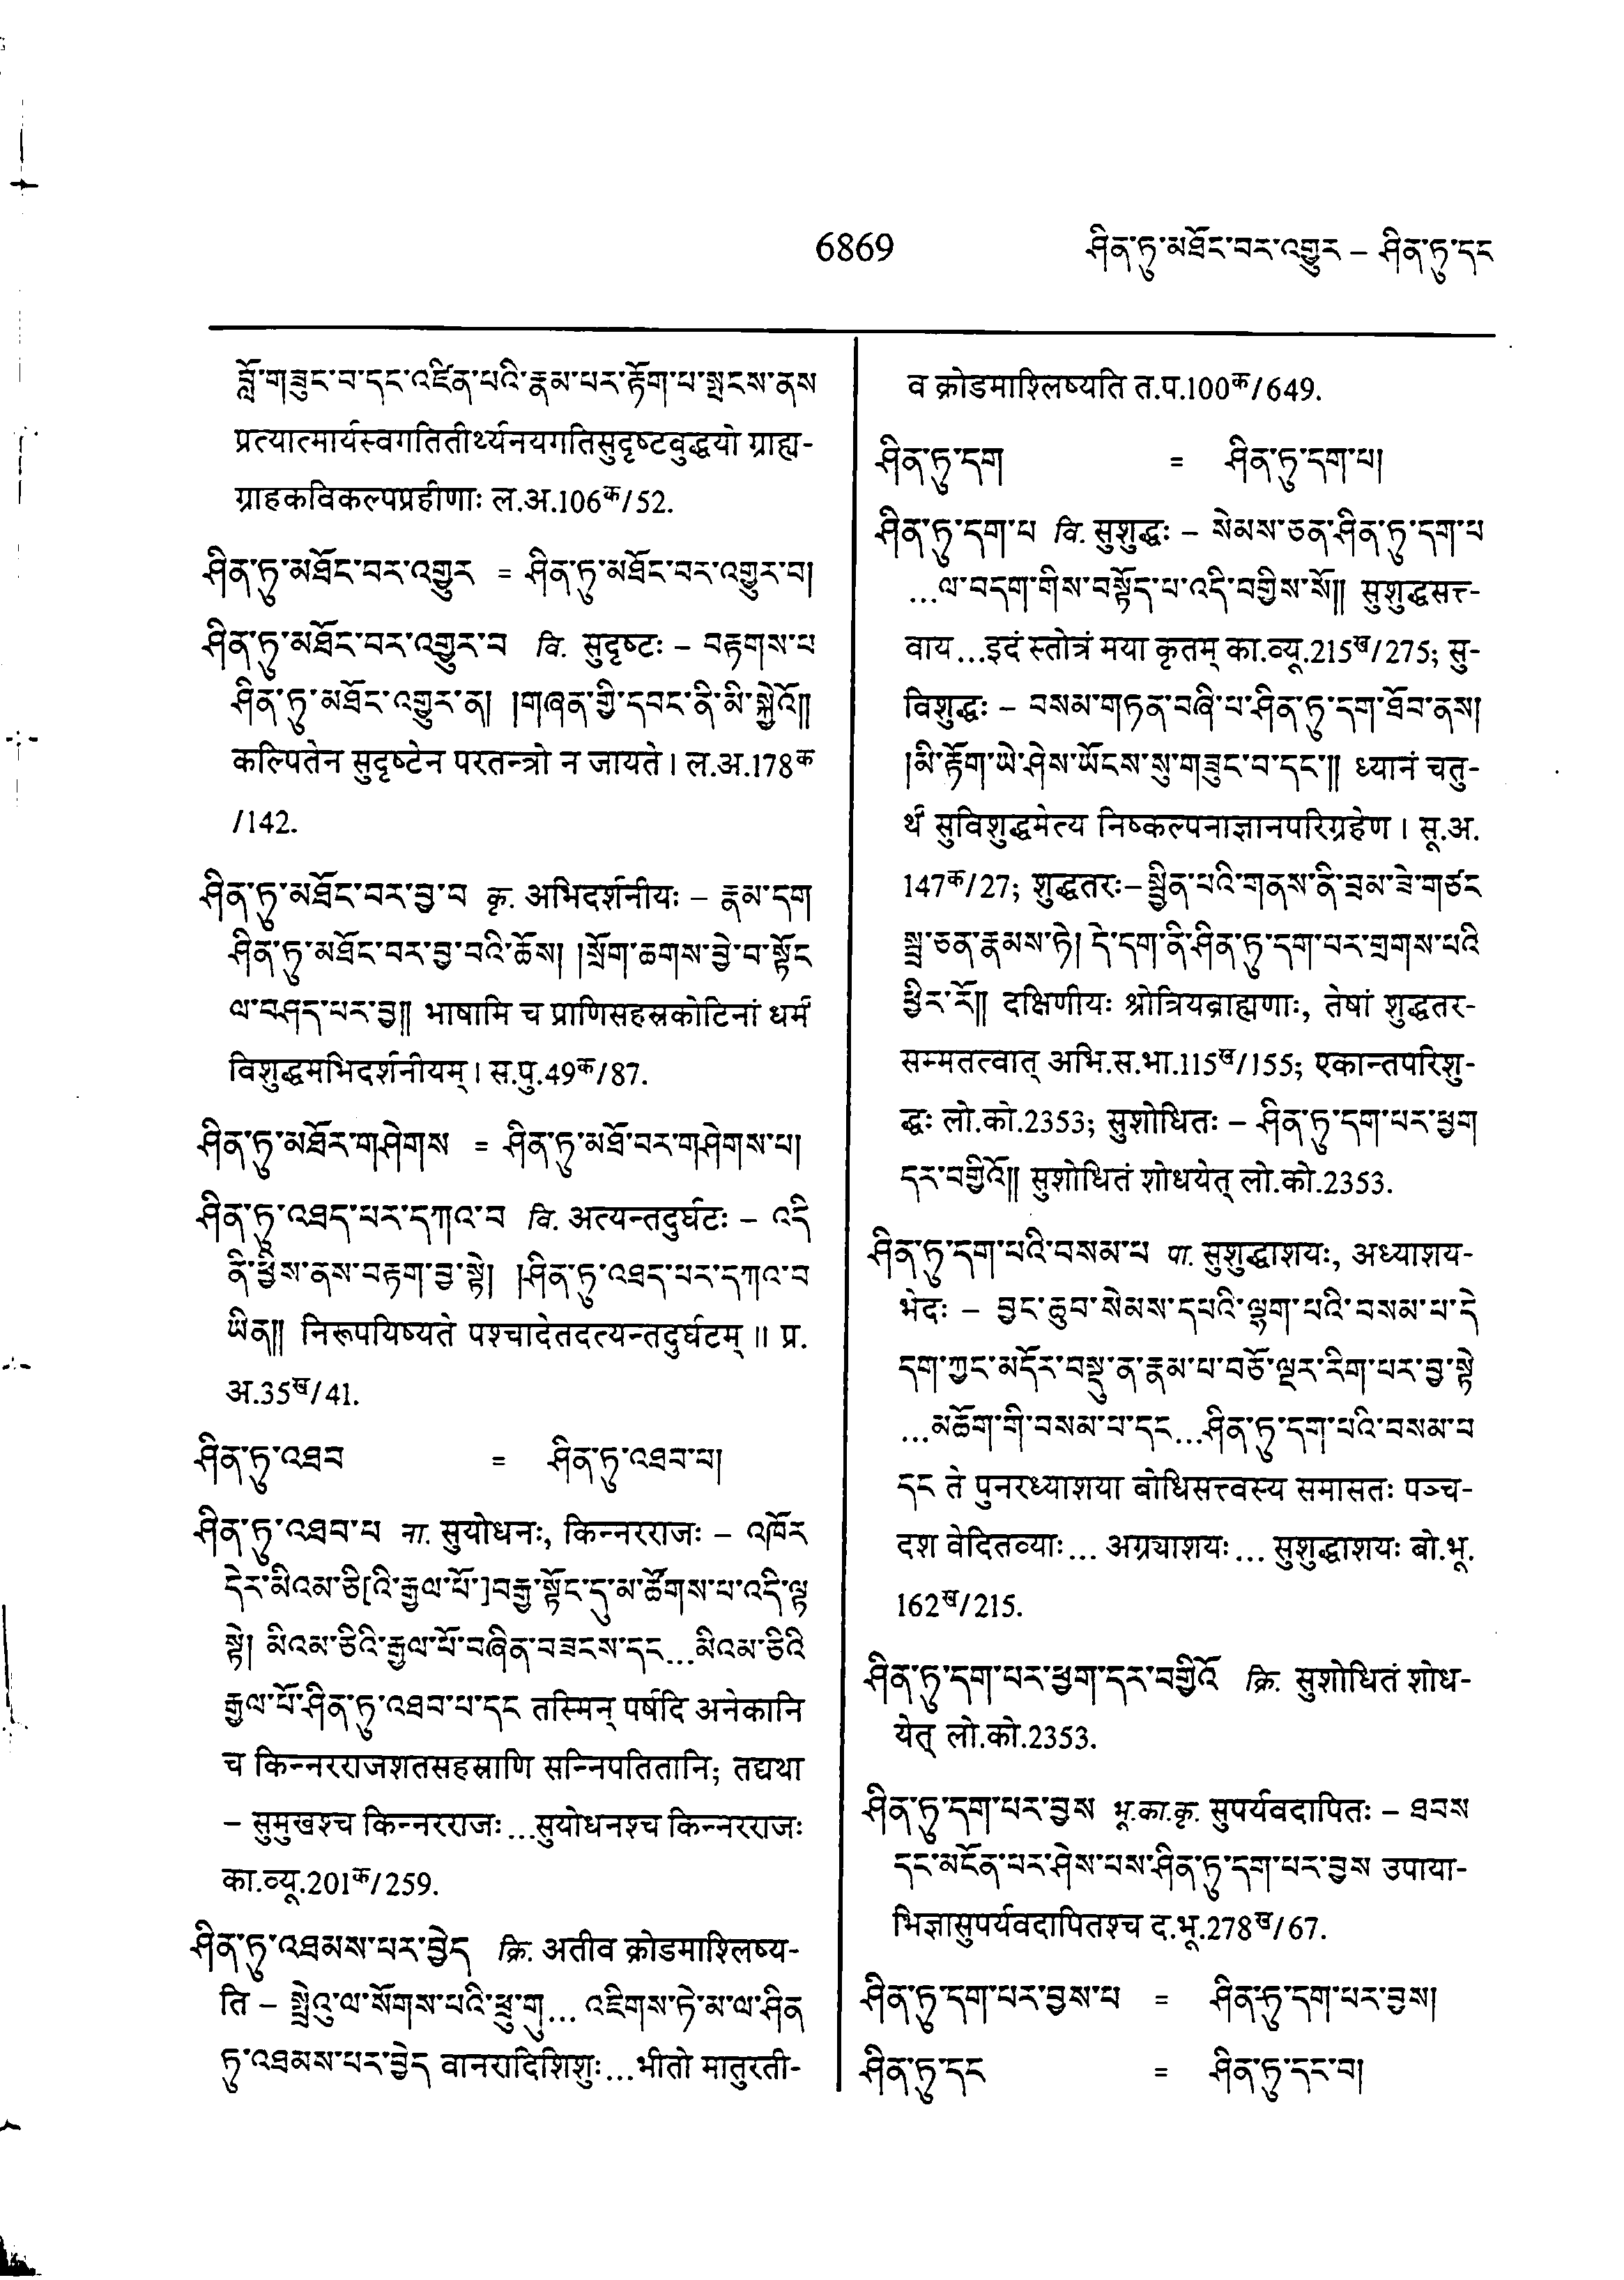 6869 ཤིན་ཏུ་མཐོང་བར་འགྱུར – ཤིན་ཏུ་དང
བློ་གཟུང་བ་དང་འཛིན་པའི་རྣམ་པར་རྟོག་པ་སྤངས་ནས
प्रत्यात्मार्यस्वगतितीर्थ्यनयगतिसुदृष्टबुद्धयो ग्राह्य-
ग्राहकविकल्पप्रहीणाः ल.अ.106क/52.
ཤིན་ཏུ་མཐོང་བར་འགྱུར = ཤིན་ཏུ་མཐོང་བར་འགྱུར་བ།
ཤིན་ཏུ་མཐོང་བར་འགྱུར་བ वि. सुदृष्टः – བརྟགས་པ
ཤིན་ཏུ་མཐོང་འགྱུར་ན། །གཞན་གྱི་དབང་ནི་མི་སྐྱེའོ༎
कल्पितेन सुदृष्टेन परतन्त्रो न जायते। ल.अ.178क
/142.
ཤིན་ཏུ་མཐོང་བར་བྱ་བ कृ. अभिदर्शनीयः – རྣམ་དག
ཤིན་ཏུ་མཐོང་བར་བྱ་བའི་ཆོས། །སྲོག་ཆགས་བྱེ་བ་སྟོང
ལ་བཤད་པར་བྱ༎ भाषामि च प्राणिसहस्रकोटिनां धर्मं
विशुद्धमभिदर्शनीयम्। स.पु.49क/87.
ཤིན་ཏུ་མཐོར་གཤེགས = ཤིན་ཏུ་མཐོ་བར་གཤེགས་པ།
ཤིན་ཏུ་འཐད་པར་དཀའ་བ वि. अत्यन्तदुर्घटः – འདི
ནི་ཕྱིས་ནས་བརྟག་བྱ་སྟེ། །ཤིན་ཏུ་འཐད་པར་དཀའ་བ
ཡིན༎ निरूपयिष्यते पश्चादेतदत्यन्तदुर्घटम्॥ प्र.
अ.35ख/41.
ཤིན་ཏུ་འཐབ = ཤིན་ཏུ་འཐབ་པ།
ཤིན་ཏུ་འཐབ་པ ना. सुयोधनः, किन्नरराजः – འཁོར
དེར་མིའམ་ཅི[འི་རྒྱལ་པོ་]བརྒྱ་སྟོང་དུ་མ་ཚོགས་པ་འདི་ལྟ
སྟེ། མིའམ་ཅིའི་རྒྱལ་པོ་བཞིན་བཟངས་དང...མིའམ་ཅིའི
རྒྱལ་པོ་ཤིན་ཏུ་འཐབ་པ་དང तस्मिन् पर्षदि अनेकानि
च किन्नरराजशतसहस्राणि सन्निपतितानि; तद्यथा
– सुमुखश्च किन्नरराजः...सुयोधनश्च किन्नरराजः
का.व्यू.201क/259.
ཤིན་ཏུ་འཐམས་པར་བྱེད क्रि. अतीव क्रोडमाश्लिष्य-
ति – སྤྲེའུ་ལ་སོགས་པའི་ཕྲུ་གུ... འཇིགས་ཏེ་མ་ལ་ཤིན
ཏུ་འཐམས་པར་བྱེད वानरादिशिशुः...भीतो मातुरती-
व क्रोडमाश्लिष्यति त.प.100क/649.
ཤིན་ཏུ་དག = ཤིན་ཏུ་དག་པ།
ཤིན་ཏུ་དག་པ वि. सुशुद्धः – སེམས་ཅན་ཤིན་ཏུ་དག་པ
...ལ་བདག་གིས་བསྟོད་པ་འདི་བགྱིས་སོ༎ सुशुद्धसत्त्-
वाय...इदं स्तोत्रं मया कृतम् का.व्यू.215ख/275; सु-
विशुद्धः – བསམ་གཏན་བཞི་པ་ཤིན་ཏུ་དག་ཐོབ་ནས།
།མི་རྟོག་ཡེ་ཤེས་ཡོངས་སུ་གཟུང་བ་དང་༎ ध्यानं चतु-
र्थं सुविशुद्धमेत्य निष्कल्पनाज्ञानपरिग्रहेण। सू.अ.
147क/27; शुद्धतरः–སྦྱིན་པའི་གནས་ནི་བྲམ་ཟེ་གཙང
སྦྲ་ཅན་རྣམས་ཏེ། དེ་དག་ནི་ཤིན་ཏུ་དག་པར་གྲགས་པའི
ཕྱིར་རོ༎ दक्षिणीयः श्रोत्रियब्राह्मणाः, तेषां शुद्धतर-
सम्मतत्वात् अभि.स.भा.115ख/155; एकान्तपरिशु-
द्धः लो.को.2353; सुशोधितः – ཤིན་ཏུ་དག་པར་ཕྱག
དར་བགྱིའོ༎ सुशोधितं शोधयेत् लो.को.2353.
ཤིན་ཏུ་དག་པའི་བསམ་པ पा. सुशुद्धाशयः, अध्याशय-
भेदः – བྱང་ཆུབ་སེམས་དཔའི་ལྷག་པའི་བསམ་པ་དེ
དག་ཀྱང་མདོར་བསྡུ་ན་རྣམ་པ་བཅོ་ལྔར་རིག་པར་བྱ་སྟེ
...མཆོག་གི་བསམ་པ་དང...ཤིན་ཏུ་དག་པའི་བསམ་པ
དང ते पुनरध्याशया बोधिसत्त्वस्य समासतः पञ्च-
दश वेदितव्याः... अग्र्याशयः... सुशुद्धाशयः बो.भू.
162ख/215.
ཤིན་ཏུ་དག་པར་ཕྱག་དར་བགྱིའོ क्रि. सुशोधितं शोध-
येत् लो.को.2353.
ཤིན་ཏུ་དག་པར་བྱས भू.का.कृ. सुपर्यवदापितः – ཐབས
དང་མངོན་པར་ཤེས་པས་ཤིན་ཏུ་དག་པར་བྱས उपाया-
भिज्ञासुपर्यवदापितश्च द.भू.278ख/67.
ཤིན་ཏུ་དག་པར་བྱས་པ = ཤིན་ཏུ་དག་པར་བྱས།
ཤིན་ཏུ་དང = ཤིན་ཏུ་དང་བ།